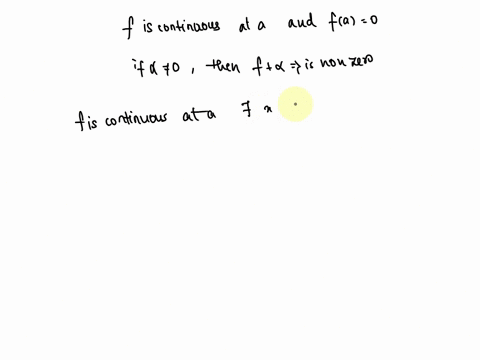 f is continuous at a and f(a) = 0
if α ≠ 0 , then f + α ⇒ is non zero
f is continuous at a ∃ x